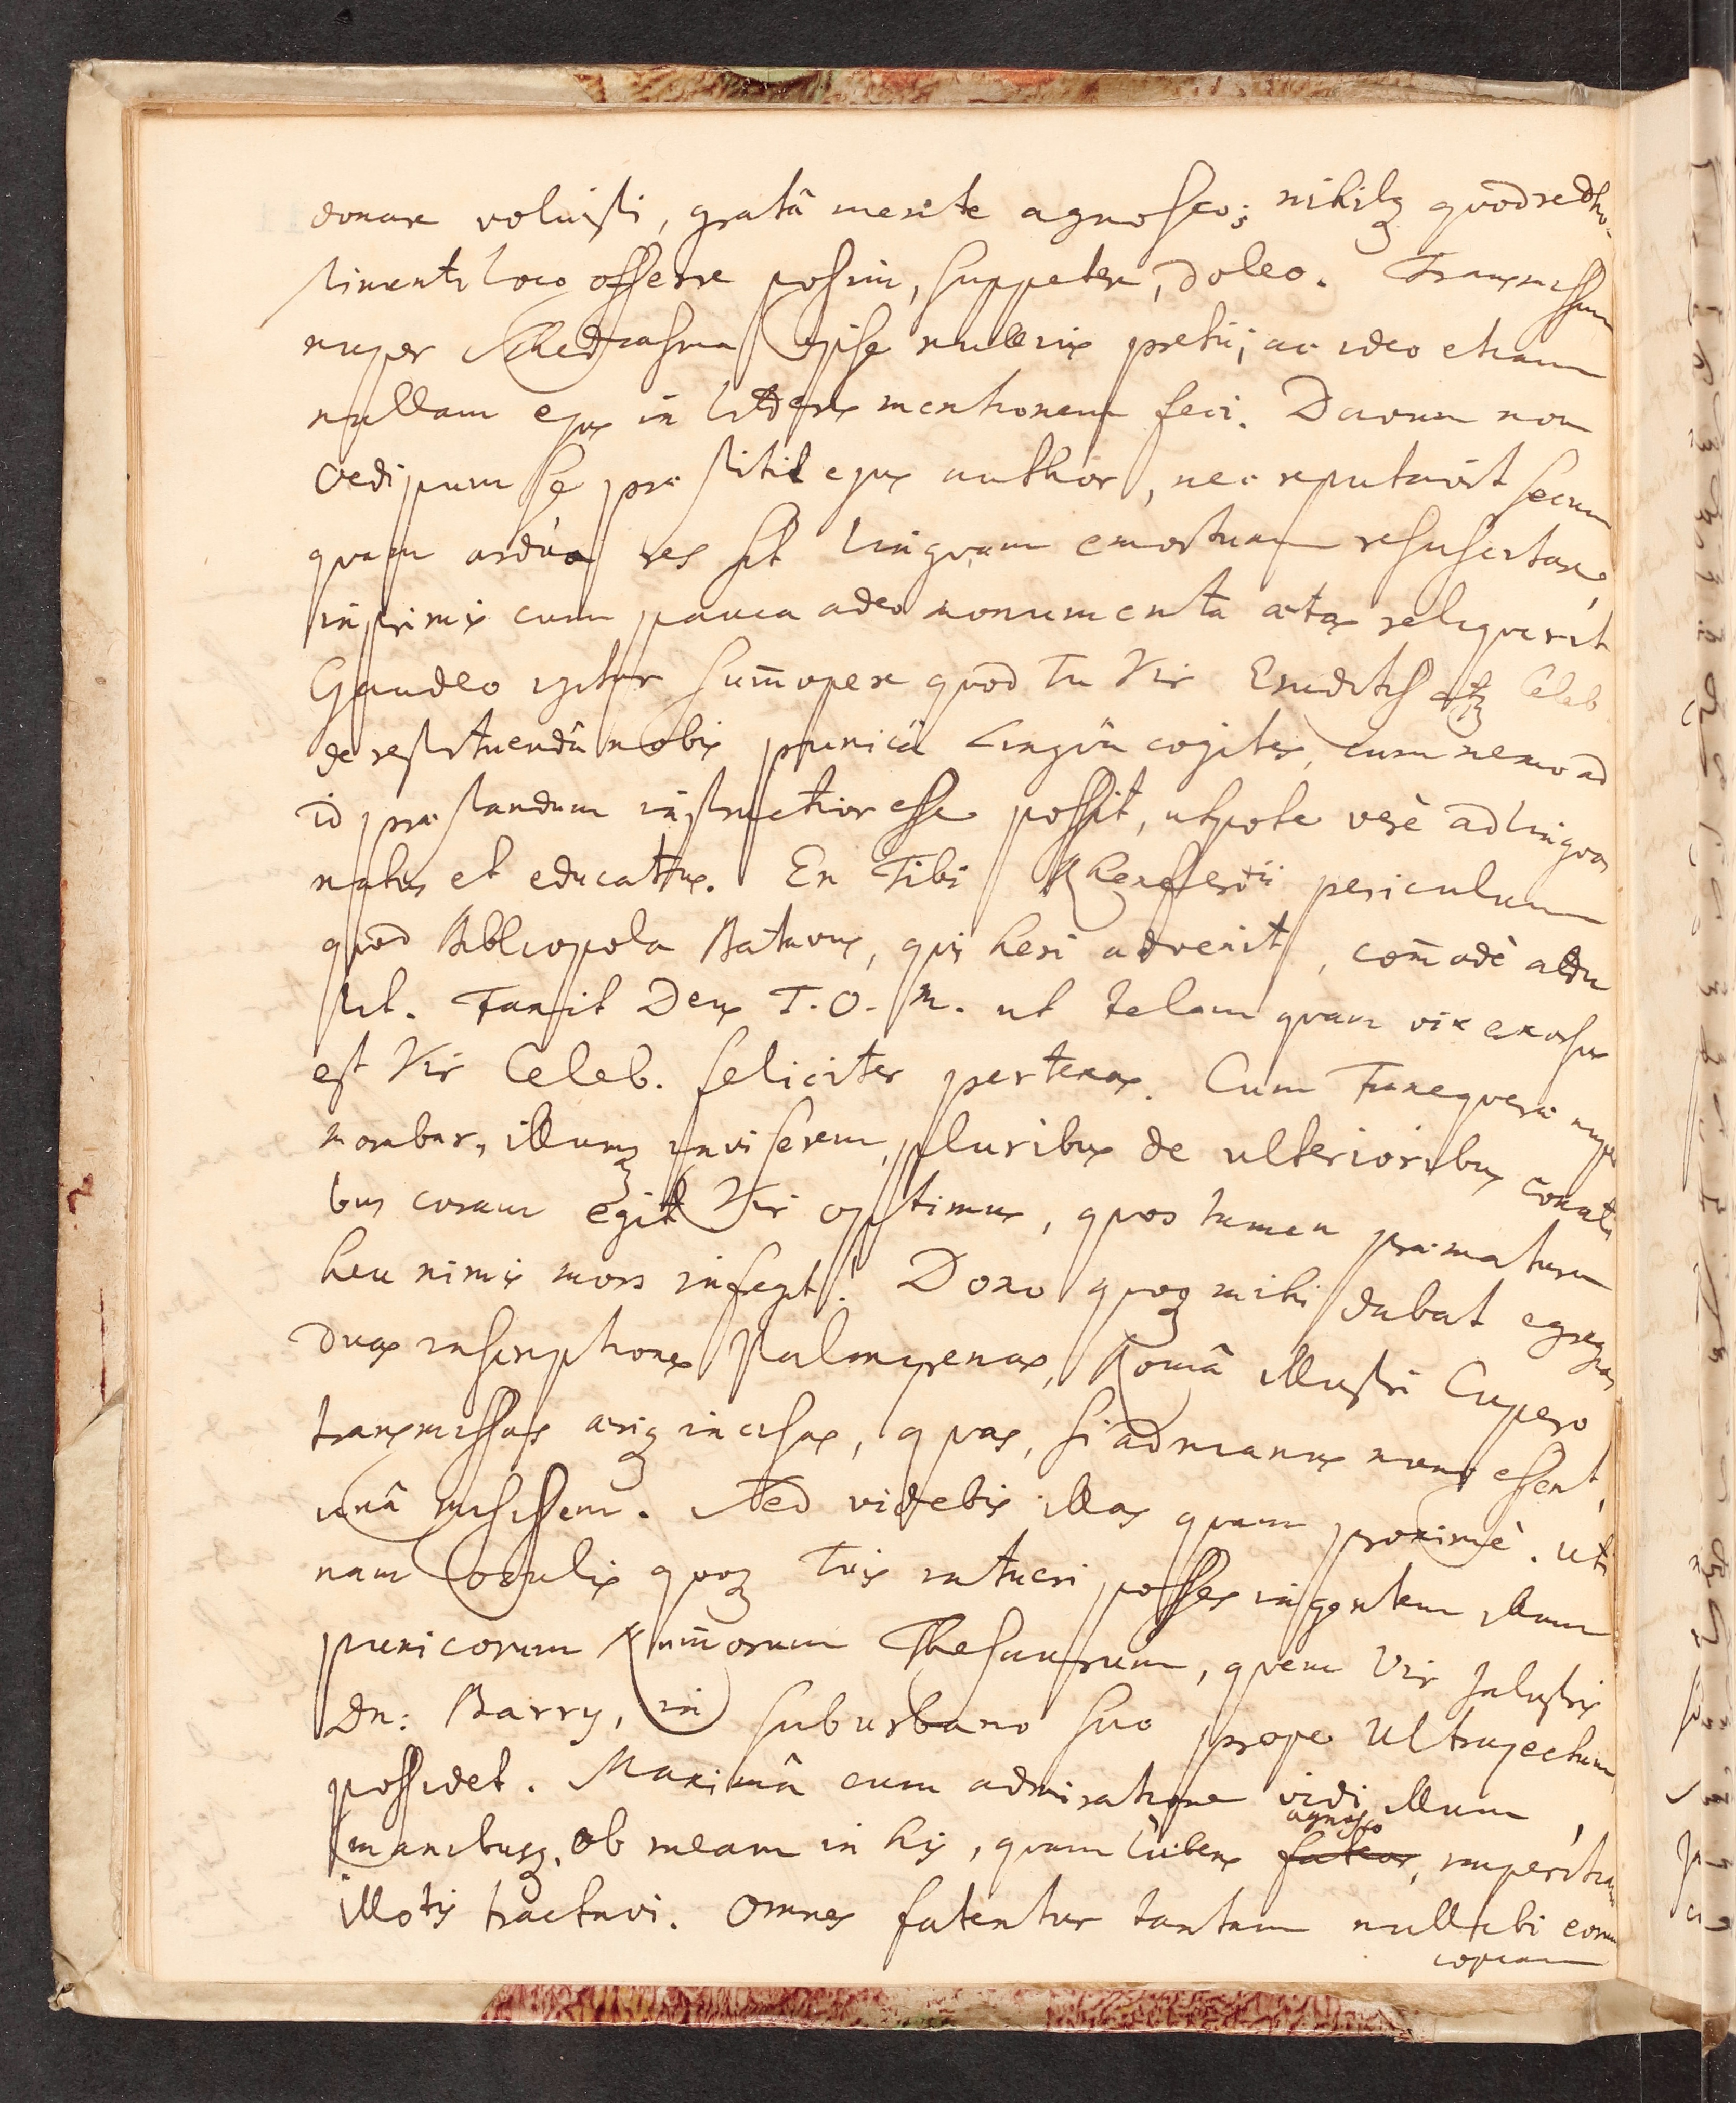 donare voluisti, gratâ mente agnosco; nihilq quod redho-
stimenti loco offerre possim, suppetere, doleo. Transmissum
nuper Schediasma ipse nullius pretii; ac ideo etiam
nullam ejus in litteris mentionem feci. Davum non
Oedipum se præstitit ejus author, nec reputavit secum
quam ardua res sit linguam emortuam resuscitare,
inprimis cum pauca adeo monumenta ætas reliquerit
Gaudeo igitur sum̄opere quod Tu Vir Eruditiss atq Celeb
de restituendâ nobis punicâ Linguâ cogites, cum nemo ad
id præstandum instructior esse possit, utpote verè ad linguas
natus et educatus. En Tibi Rhenferdii periculum
quod Bibliopola Batavus, qui heri advenit, com̄odè attu
lit. Faxit Deus T. O. M. ut telam quam vix exorsus
est Vir Celeb. feliciter pertexas. Cum Franequeræ nuper
morabar, illumq inviserem, pluribus de ulterioribus conati
bus coram egit Vir optimus, quos tamen præmatura
heu nimis mors infregit! Dono quoq mihi dabat egregias
duas inscriptiones Palmyrenas, Româ illustri Cupero
transmissas æriq incisas, quas, si ad manus nunc essent,
unâ misissem. Sed videbis illas quam proximè. Uti
nam oculis quoq Tuis intueri posses ingentem illum
punicorum Num̄orum Thesaurum, quem Vir Illustris
Dn: Barry, in suburbano suo prope Ultrajectum
possidet. Maximâ cum admiratione vidi illum,
manibusq, ob meam in his, quam lubens agnosco fateor, imperitiam
illotis tractavi. Omnes fatentur tantam nullibi eorum
copiam